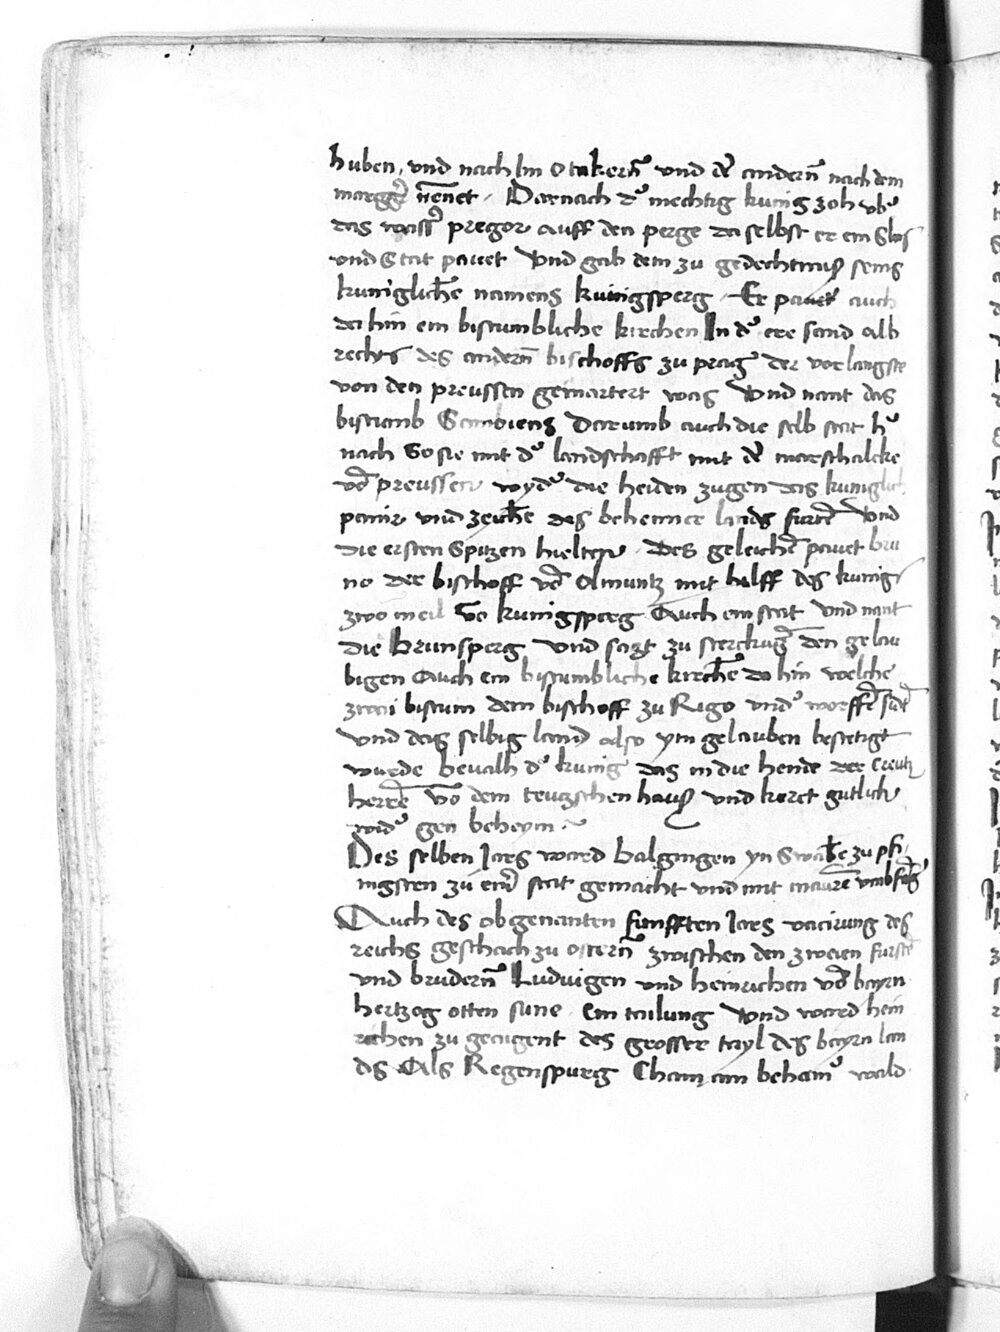 huben, vnd nach Im Otakerñ vnd dē anderñ nach dem
marggᵉ neñet. Darnach dᵉ mechtig kunig zoh vbᵉ
das wassᵉ pregor auff den perge da selbst er ein Slos
vnd Stat pauet Vnd gab dem zu gedechtnuß seins
kuniglichē namens kunigsperg. Er pauet auch
da hin ein bistumbliche kirchen In dᵉ ere sand alb
rechts des anderñ bischoffs zu prag der vor langste
von den preussen gemartert was Vnd nant das
bistumb Sambiens Darumb auch die selb stat hᵉ
nach So sie mit dᵉ landschafft mit dē marschalcke
vō preussen wydᵉ die heiden zugen das kuniglich
panir vnd zeichē des behemer lands furtē Vnd
die ersten Spitzen hielten. Des geleichē pauet bru
no der bischoff vō Olmuntz mit hilff des kunigs
zwo meil vō kunigsperg Auch ein stat vnd nant
die Brunsperg vnd sazt zu sterckūg den gelau
bigen Auch ein bistumbliche kirchē da hin welche
zwai bistum dem bischoff zu Rigo vndᵉ worffē sind
Vnd das selbig land also ym gelauben bestetigt
wurde beualh dᵉ kunig das in die hende der Creutz
herrē vō dem teutzschen hauß vnd keret gutlich
widᵉ gen beheym.
Des selben Jares ward balgingen yn Swabē zu pfi
ngsten zu einē stat gemacht vnd mit maurē vmbfagē
Auch des obgenanten funfften Jares vacirung des
reichs geschach zu osterñ zwischen den zweien furstē
vnd bruderñ Luduigen vnd heinrichen vō bayrn
hertzog otten süne ein tailung Vnd ward hein
richen zu geaigent des grosser tayl des bayrn lan
ds Als Regenspurg Cham am behamᵉ wald